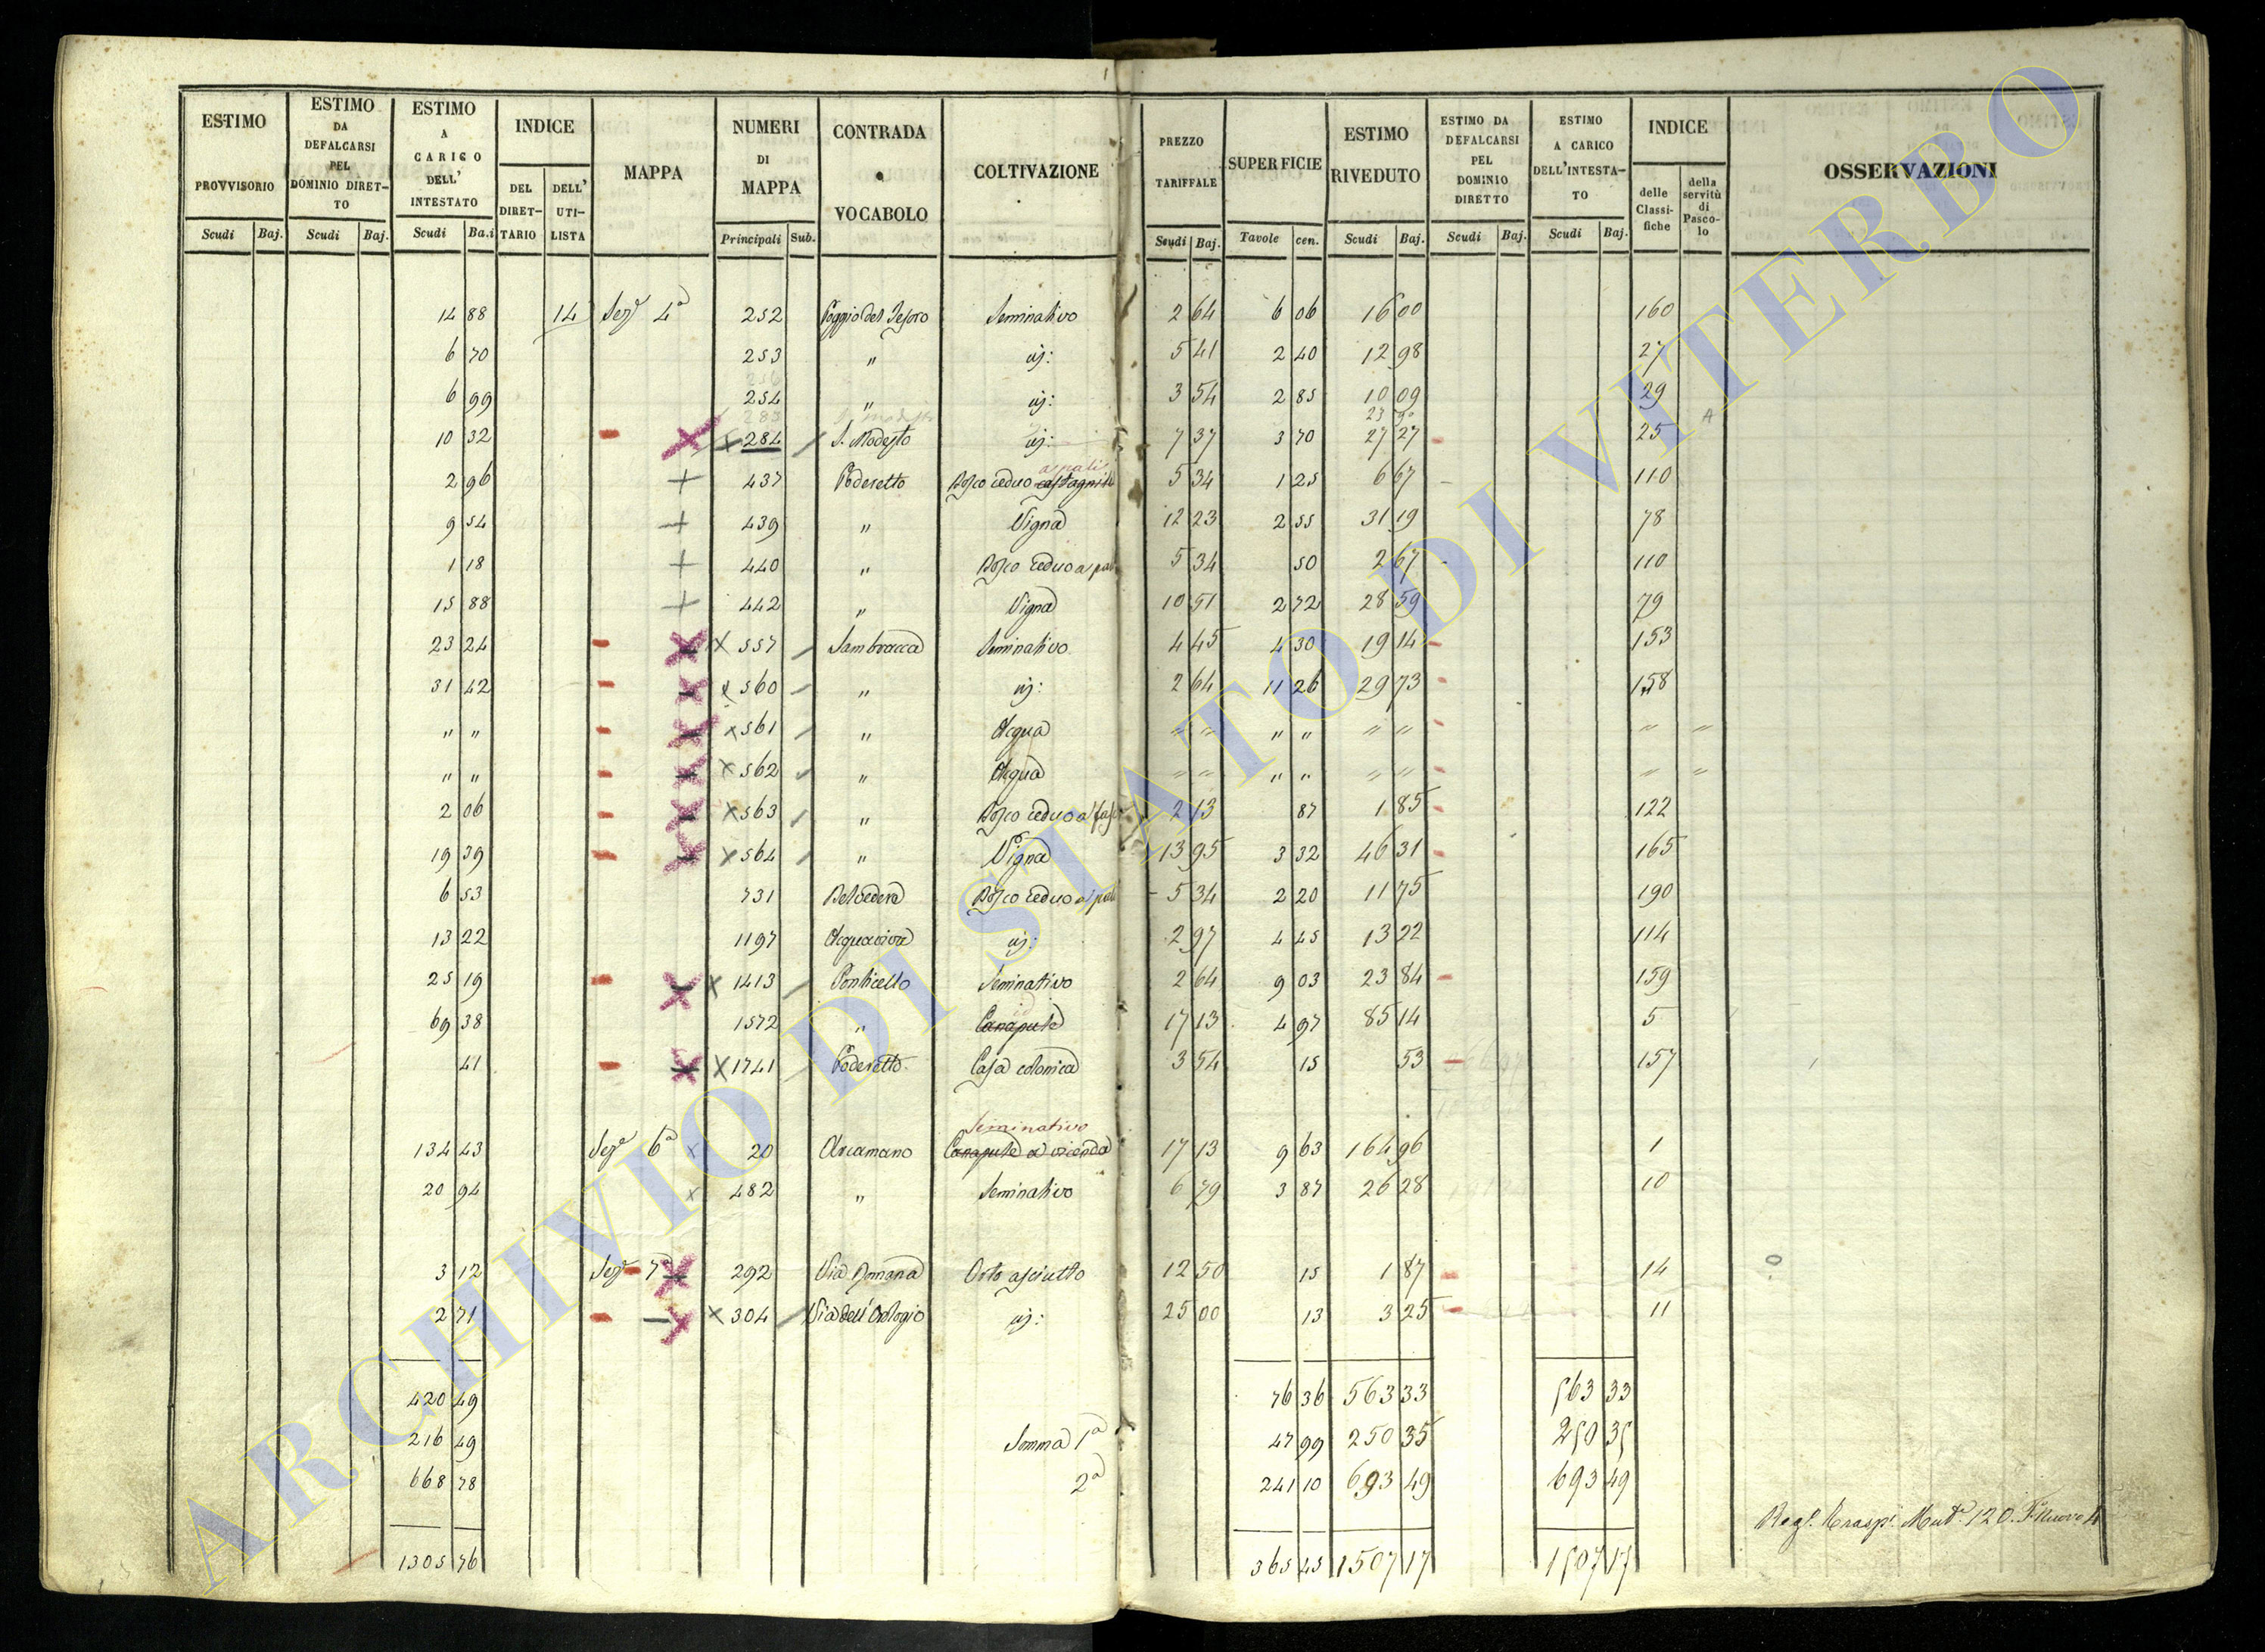 ESTIMO PROVVISORIO | ESTIMO DA DEFALCARSI PEL DOMINIO DIRET-TO | ESTIMO A CARICO DELL' INTESTATO | INDICE | MAPPA | NUMERI DI MAPPA | CONTRADA o VOCABOLO | COLTIVAZIONE | PREZZO TARIFFALE | SUPERFICIE | ESTIMO RIVEDUTO | ESTIMO DA DEFALCARSI PEL DOMINIO DIRETTO | ESTIMO A CARICO DELL'INTESTA-TO | INDICE | OSSERVAZIONI
DEL DIRET-TARIO | DELL' UTI-LISTA | delle Classi-fiche | della servitù di Pasco-lo
Scudi | Baj. | Scudi | Baj. | Scudi | Ba.i | Principali | Sub. | Scudi | Baj. | Tavole | cen. | Scudi | Baj. | Scudi | Baj. | Scudi | Baj.
14 88 | 14 | Sezᵉ 4ª | 252 | Poggio del Tesoro | Seminativo | 2 64 | 6 06 | 16 00 | 160
6 70 | 253 | " | id: | 5 41 | 2 40 | 12 98 | 27
6 99 | 254 | " | id: | 3 54 | 2 85 | 10 09 | 29
10 32 | x 284 | S. Modesto | id: | 7 37 | 3 70 | 27 27 | 25
2 96 | + | 437 | Poderetto | Bosco ceduo castagnile a pali | 5 34 | 1 25 | 6 67 | 110
9 54 | + | 439 | " | Vigna | 12 23 | 2 55 | 31 19 | 78
1 18 | + | 440 | " | Bosco ceduo a pali | 5 34 | 50 | 2 67 | 110
15 88 | + | 442 | " | Vigna | 10 51 | 2 72 | 28 59 | 79
23 24 | x 557 | Sambracca | Seminativo | 4 45 | 4 30 | 19 14 | 153
31 42 | x 560 | " | id: | 2 64 | 11 26 | 29 73 | 158
" " | x 561 | " | Acqua | " " | " " | " " | " | "
" " | x 562 | " | Acqua | " " | " " | " " | " | "
2 06 | x 563 | " | Bosco ceduo a | 2 13 | 87 | 1 85 | 122
19 39 | x 564 | " | Vigna | 13 95 | 3 32 | 46 31 | 165
6 53 | 731 | Belvedere | Bosco ceduo a pali | 5 34 | 2 20 | 11 75 | 190
13 22 | 1197 | Acquaviva | id: | 2 97 | 4 45 | 13 22 | 114
25 19 | x 1413 | Ponticello | Seminativo | 2 64 | 9 03 | 23 84 | 159
69 38 | 1572 | " | Canapule | 17 13 | 4 97 | 85 14 | 5
41 | x 1741 | Poderetto | Casa colonica | 3 54 | 15 | 53 | 157
Seminativo
134 43 | Sezᵉ 6ª | x 20 | Arcamano | Canapule a vicenda | 17 13 | 9 63 | 164 96 | 1
20 94 | x 482 | " | Seminativo | 6 79 | 3 87 | 26 28 | 10
3 12 | Sezᵉ 7ª | 292 | Via Romana | Orto asciutto | 12 50 | 15 | 1 87 | 14
2 71 | x 304 | Via dell' Orologio | id: | 25 00 | 13 | 3 25 | 11
420 49 | 76 36 | 563 33 | 563 33
216 49 | Somma 1ª | 47 99 | 250 35 | 250 35
668 78 | 2ª | 241 10 | 693 49 | 693 49
1305 76 | 365 45 | 1507 17 | 1507 17
120
ARCHIVIO DI STATO DI VITERBO